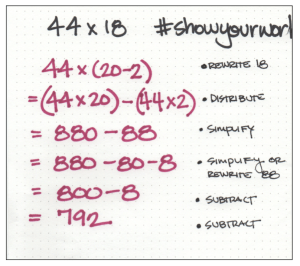 44 x 18 #showyourwork
44 x (20-2) • REWRITE 18
=(44 x 20) - (44 x 2) • DISTRIBUTE
= 880 - 88 • SIMPLIFY
= 880 - 80 - 8 • SIMPLIFY OR REWRITE 88
= 800 - 8 • SUBTRACT
= 792 • SUBTRACT